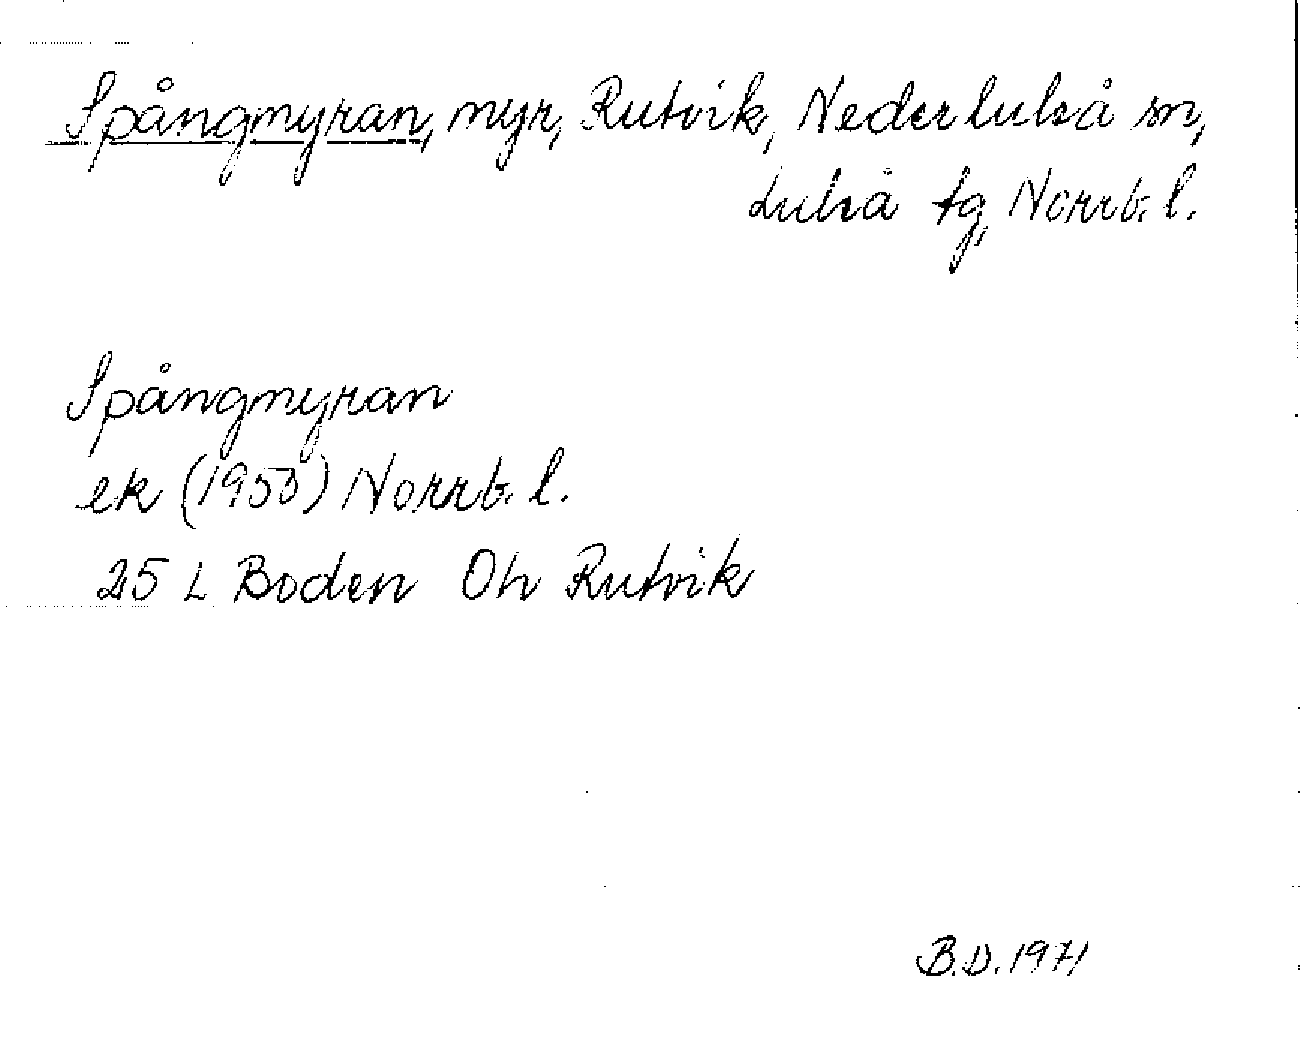 Spångmyran, myr, Rutvik, Nederluleå sn,
Luleå tg, Norrb. l.
Spångmyran
ek (1950) Norrb. l.
25 L Boden Öh Rutvik
B.D. 1971